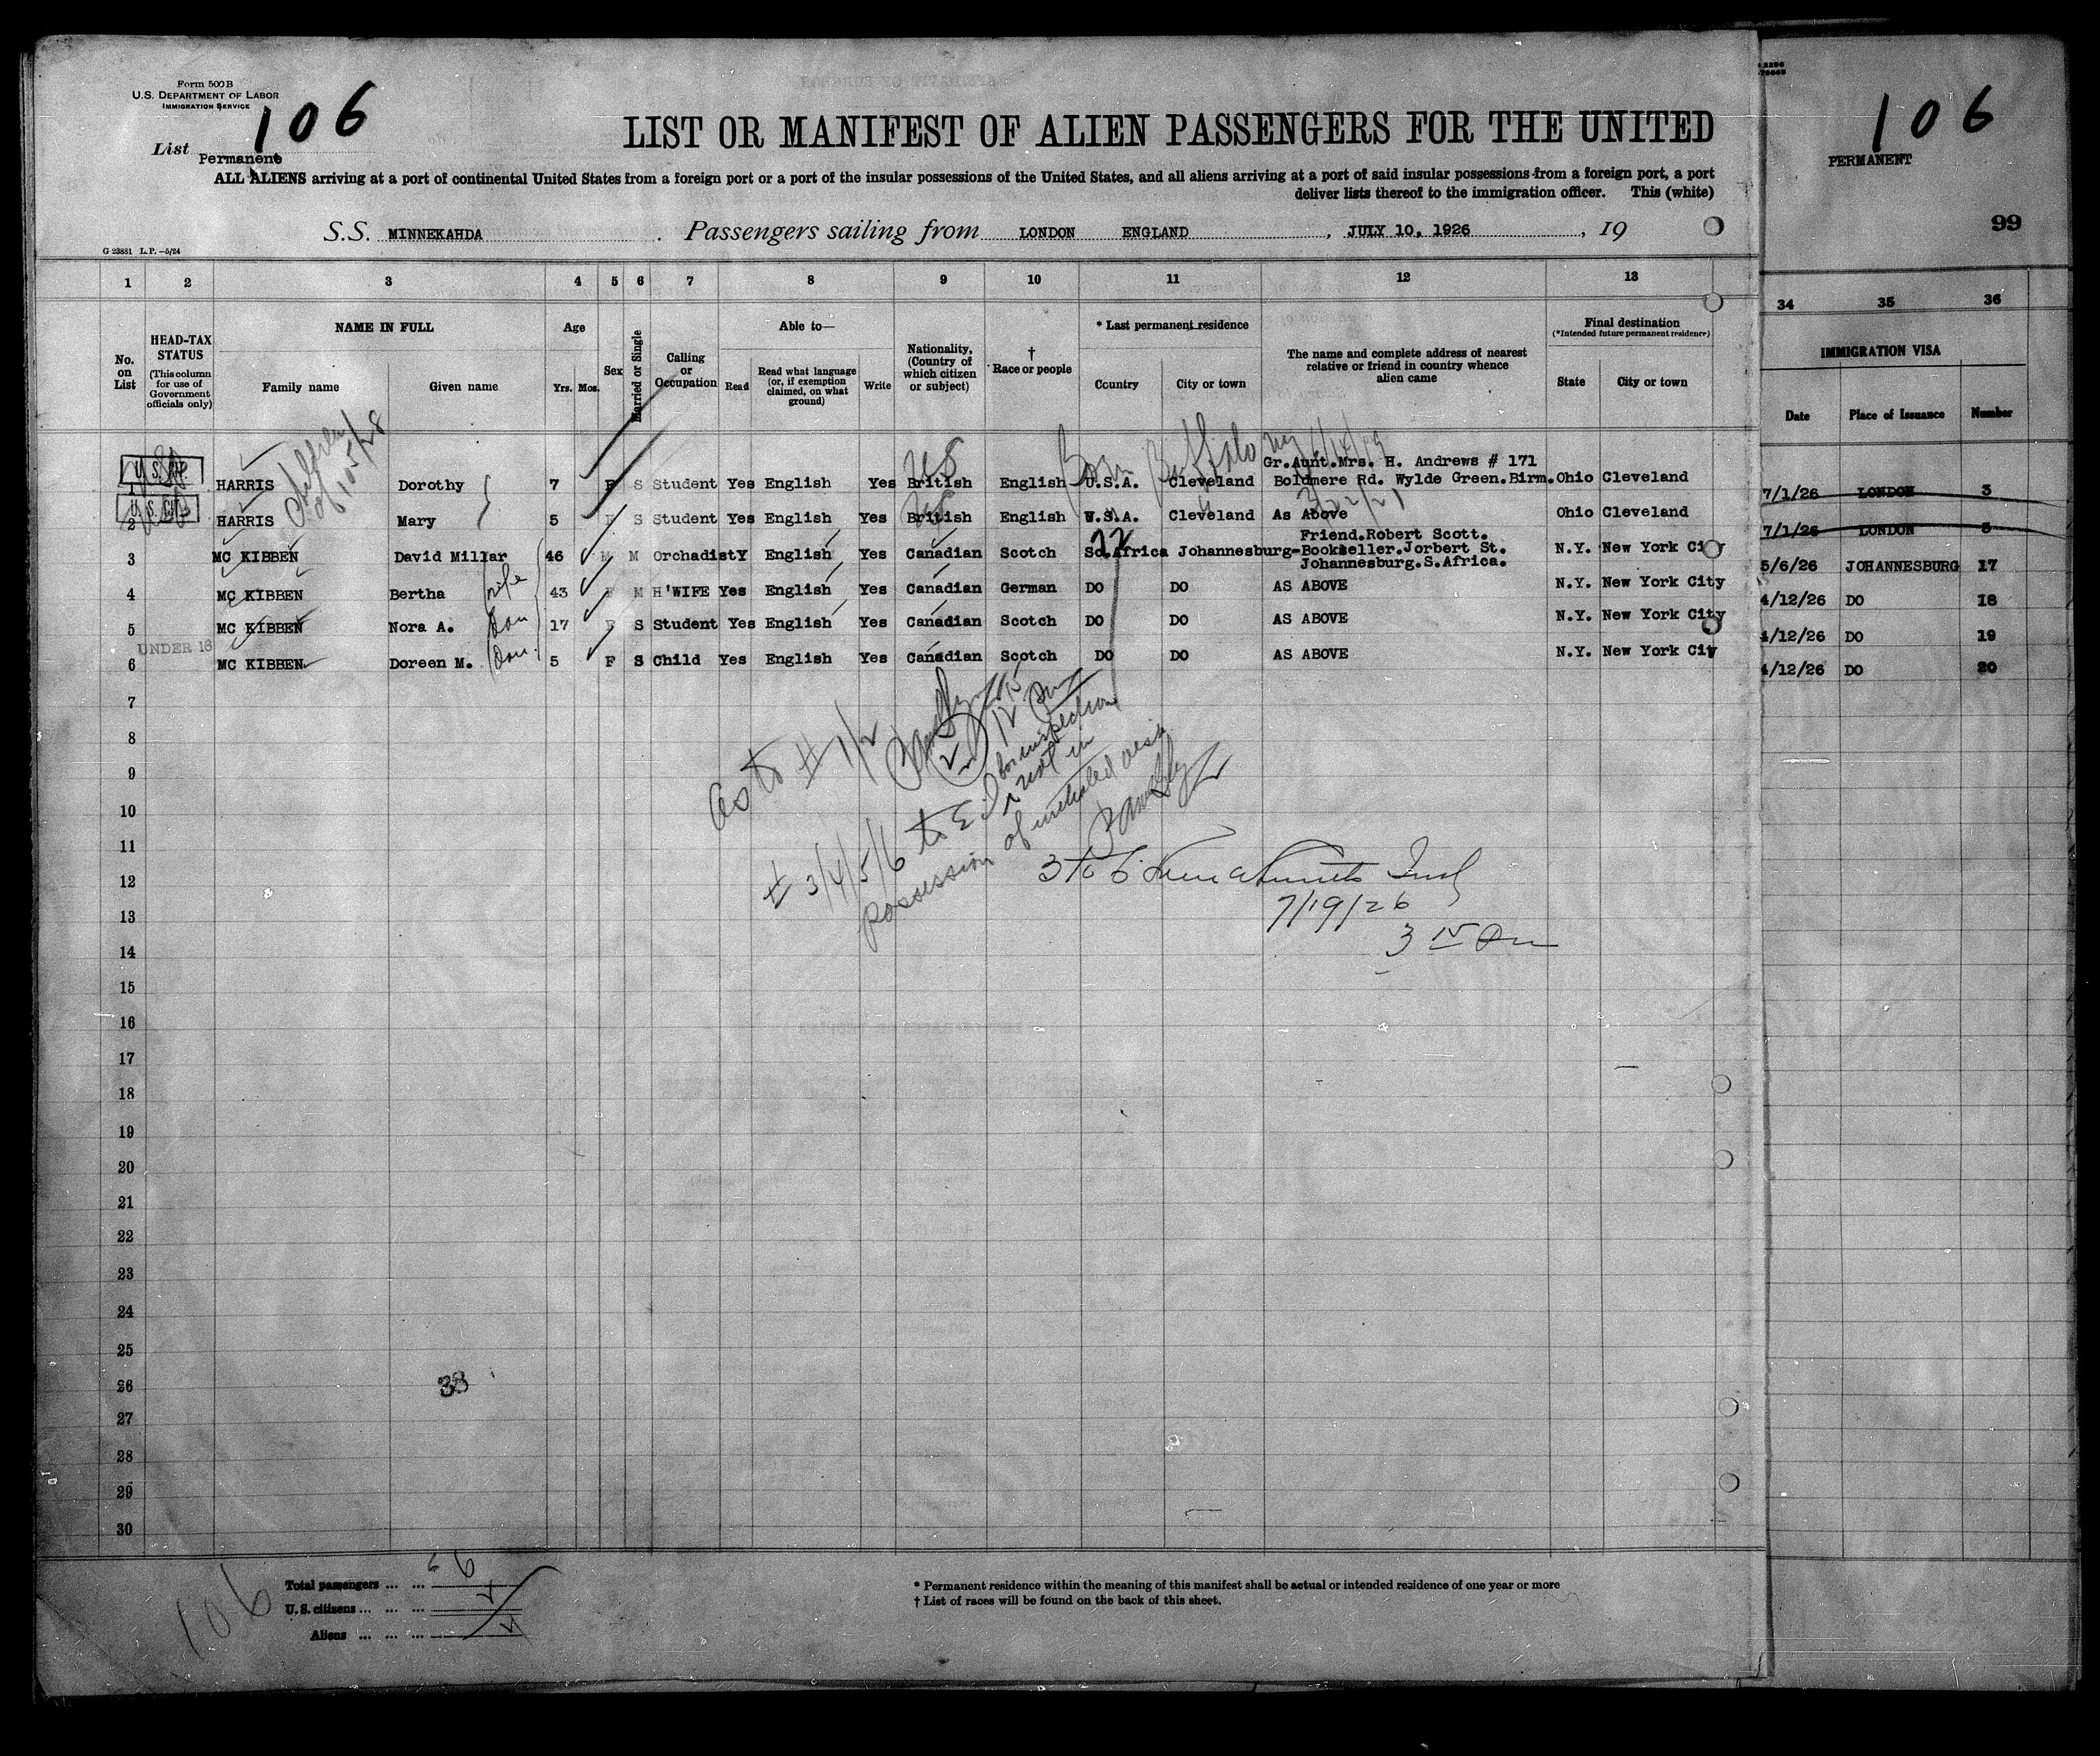 Form 500 B
U.S. DEPARTMENT OF LABOR
IMMIGRATION SERVICE
106
List
Permanent
LIST OR MANIFEST OF ALIEN PASSENGERS FOR THE UNITED
ALL ALIENS arriving at a port of continental United States from a foreign port or a port of the insular possessions of the United States, and all aliens arriving at a port of said insular possessions from a foreign port, a port
deliver lists thereof to the immigration officer. This (white)
S.S. MINNEKAHDA. Passengers sailing from LONDON ENGLAND, JULY 10, 1926, 19
G 23881 L.P.-5/24
106
PERMANENT
99
1 2 3 4 5 6 7 8 9 10 11 12 13 34 35 36
No. on List
HEAD-TAX STATUS
(This column for use of Government officials only)
NAME IN FULL
Family name Given name
Age
Yrs. Mos.
Sex
Married or Single
Calling or Occupation
Able to—
Read
Read what language (or, if exemption claimed, on what ground)
Write
Nationality, (Country of which citizen or subject)
† Race or people
* Last permanent residence
Country City or town
The name and complete address of nearest relative or friend in country whence alien came
Final destination
(*Intended future permanent residence)
State City or town
IMMIGRATION VISA
Date Place of Issuance Number
US
Born Buffalo NY
U.S. CIT.
1 HARRIS Dorothy 7 F S Student Yes English Yes British English U.S.A. Cleveland Gr.Aunt.Mrs. H. Andrews # 171 Boldmere Rd. Wylde Green.Birm. Ohio Cleveland 7/1/26 LONDON 3
U.S. CIT.
2 HARRIS Mary 5 F S Student Yes English Yes British English U.S.A. Cleveland As Above Ohio Cleveland 7/1/26 LONDON 5
3 MC KIBBEN David Millar 46 M M Orchadist Y English Yes Canadian Scotch So.Africa Johannesburg-Friend.Robert Scott. Bookseller.Jorbert St. Johannesburg.S.Africa. N.Y. New York City 5/6/26 JOHANNESBURG 17
4 MC KIBBEN Bertha wife 43 F M H'WIFE Yes English Yes Canadian German DO DO AS ABOVE N.Y. New York City 4/12/26 DO 18
5 MC KIBBEN Nora A. dau 17 F S Student Yes English Yes Canadian Scotch DO DO AS ABOVE N.Y. New York City 4/12/26 DO 19
UNDER 16
6 MC KIBBEN Doreen M. dau 5 F S Child Yes English Yes Canadian Scotch DO DO AS ABOVE N.Y. New York City 4/12/26 DO 20
7
8
9
10
11
12
13
14
15
16
17
18
19
20
21
22
23
24
25
26
27
28
29
30
as to # 1/2
# 3/4/5/6 to E.I. for inspection
not in
possession of
3 to 6
7/19/26
3 15 Pm
38
106
Total passengers ... ... 6 6
U.S. citizens ... ... ...
Aliens ... ... ...
* Permanent residence within the meaning of this manifest shall be actual or intended residence of one year or more
† List of races will be found on the back of this sheet.